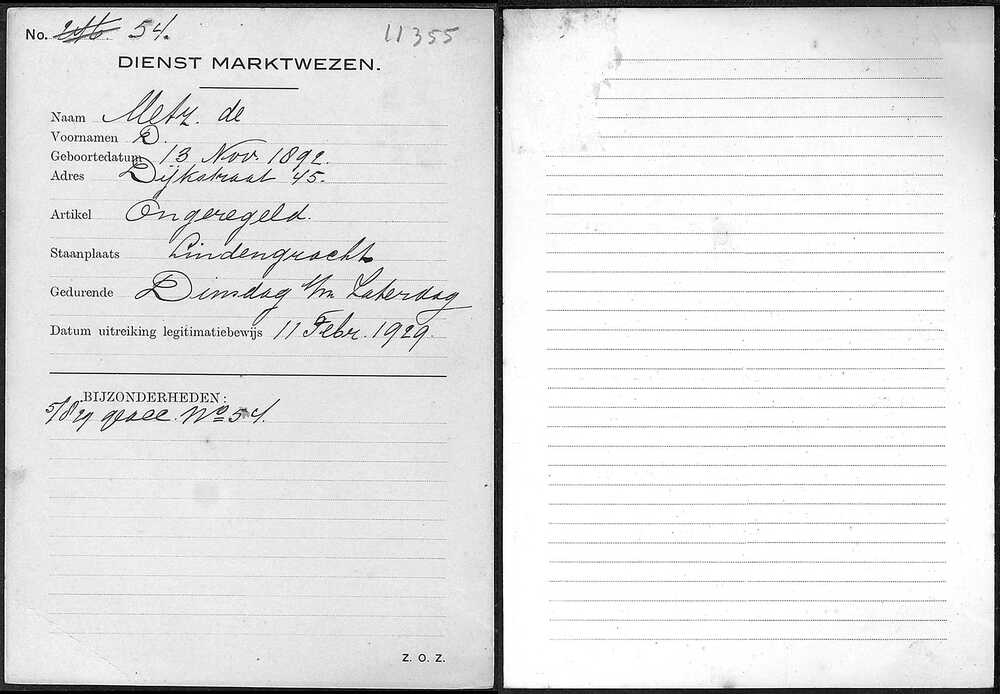 No. 246. 54. 11355
DIENST MARKTWEZEN.
Naam Metz. de
Voornamen D.
Geboortedatum 13 Nov. 1892.
Adres Dijkstraat 45.
Artikel Ongeregeld.
Staanplaats Lindengracht
Gedurende Dinsdag t/m Zaterdag
Datum uitreiking legitimatiebewijs 11 Febr. 1929.
BIJZONDERHEDEN:
5/8 29 No 54.
Z. O. Z.